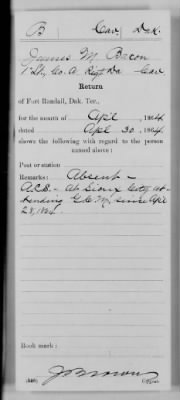 B Cav. Dak.
James M. Bacon
1 Lt., Co. A. Regt Da Cav
Return
of Fort Randall, Dak. Ter.,
for the month of Apl, 1864
dated Apl 30, 1864,
shows the following with regard to the person
named above:
Post or station
Remarks: Absent-
A.C.S- At Sioux City at-
tending G.C.M. since Apl
28, 1864.
Book mark:
Copyist.